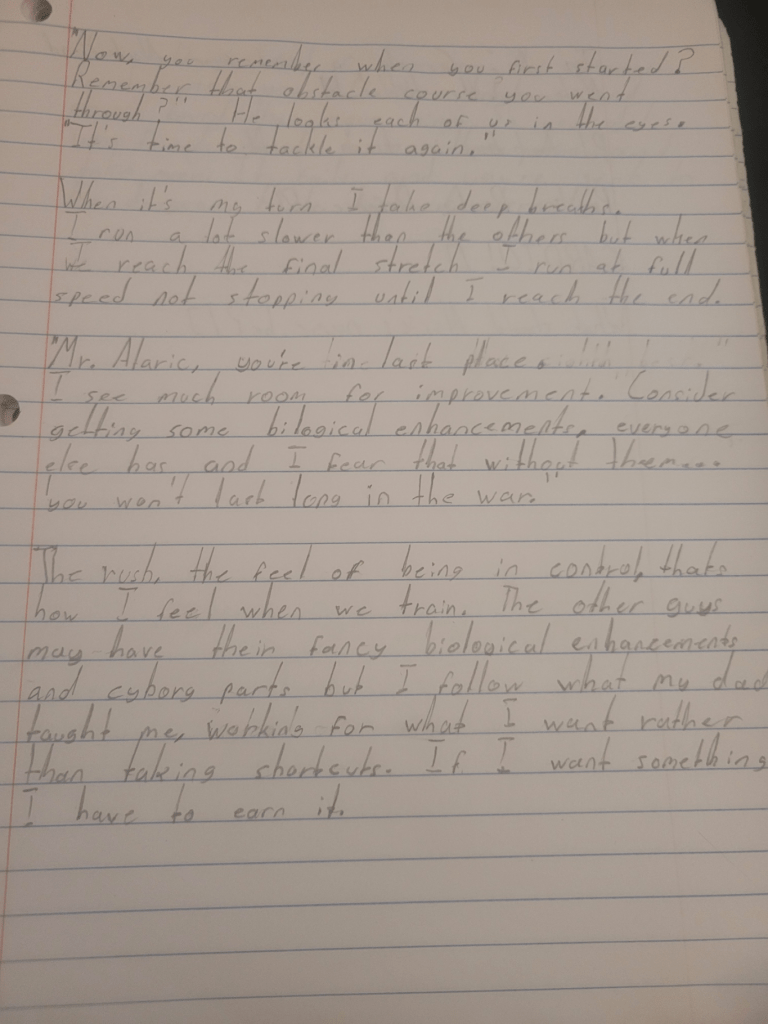 "Now, you remember when you first started?
Remember that obstacle course you went
through?" He looks each of us in the eyes.
"It's time to tackle it again."
When it's my turn I take deep breaths.
I run a lot slower than the others but when
I reach the final stretch I run at full
speed not stopping until I reach the end.
"Mr. Alaric, you're in last place.
I see much room for improvement. Consider
getting some bilogical enhancements, everyone
else has and I fear that without them...
you won't last long in the war."
The rush, the feel of being in control, thats
how I feel when we train. The other guys
may have their fancy biological enhancements
and cyborg parts but I follow what my dad
taught me, working for what I want rather
than taking shortcuts. If I want something
I have to earn it.